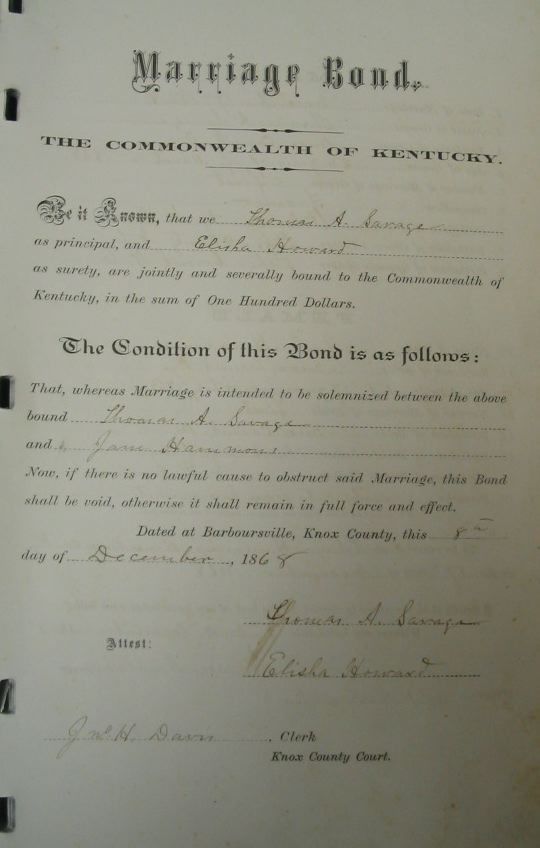 Marriage Bond.
THE COMMONWEALTH OF KENTUCKY.
Be it Known, that we Thomas A. Savage
as principal, and Elisha Howard
as surety, are jointly and severally bound to the Commonwealth of
Kentucky, in the sum of One Hundred Dollars.
The Condition of this Bond is as follows:
That, whereas Marriage is intended to be solemnized between the above
bound Thomas A. Savage
and Jane Hammons
Now, if there is no lawful cause to obstruct said Marriage, this Bond
shall be void, otherwise it shall remain in full force and effect.
Dated at Barboursville, Knox County, this 8th
day of December, 1868
Thomas A. Savage
Attest:
Elisha Howard
J Mc H. Davis, Clerk
Knox County Court.